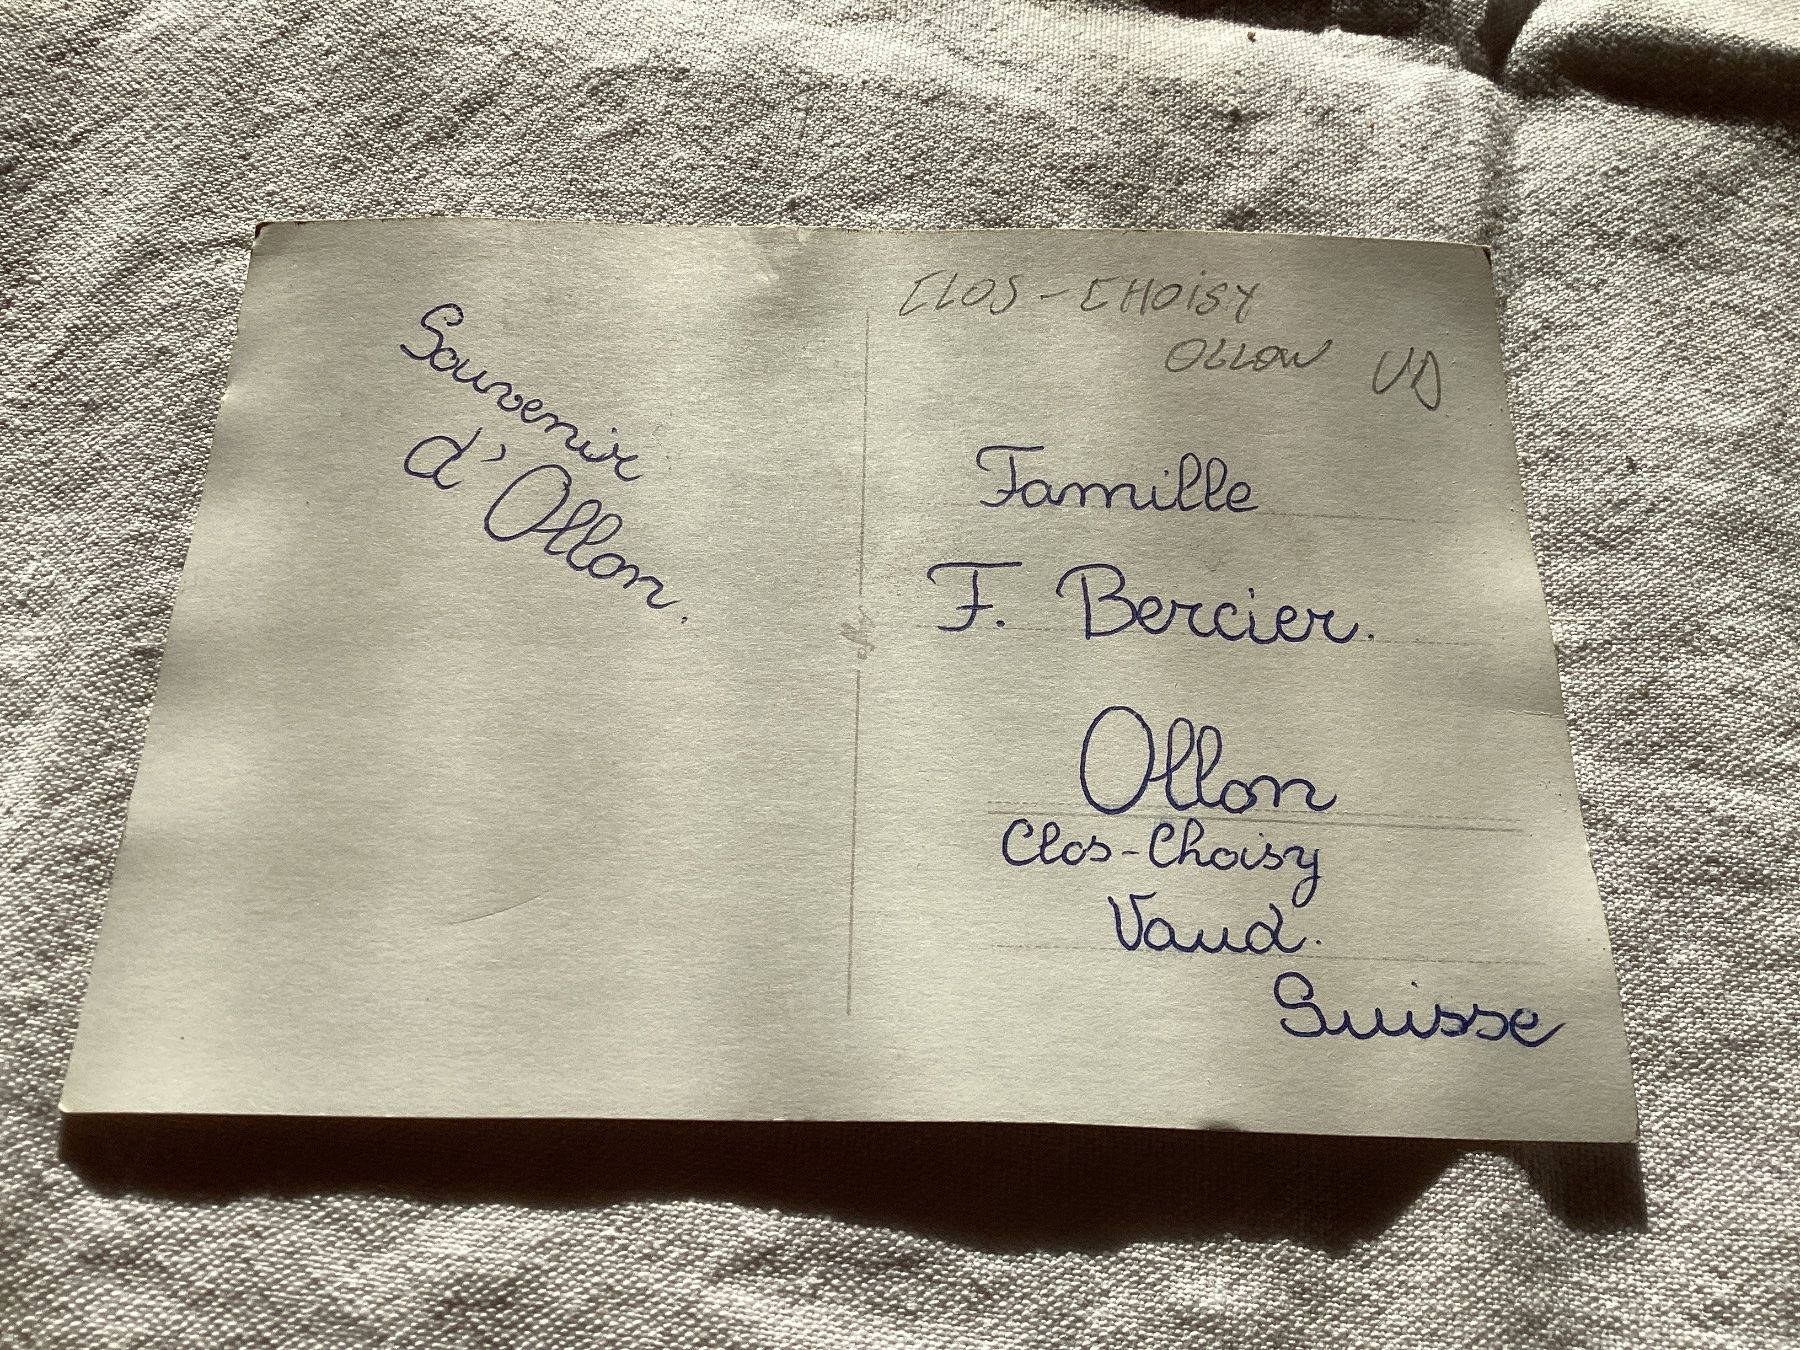 Souvenir
d'Ollon.
CLOS-CHOISY
OLLON VD
Famille
F. Bercier.
Ollon
Clos-Choisy
Vaud.
Suisse